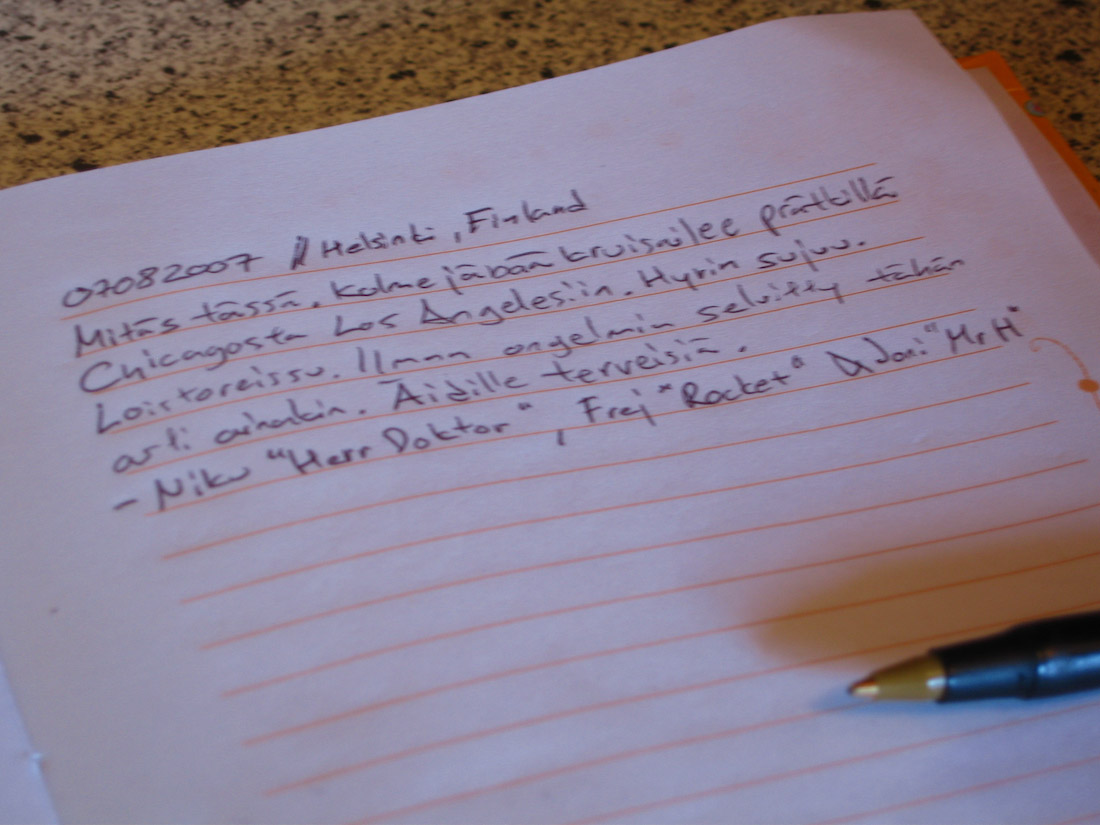 07082007 // Helsinki, Finland
Mitäs tässä. Kolme jäbää kruisailee prätkillä
Chicagosta Los Angelesiin. Hyvin sujuu.
Loistoreissu. Ilman ongelmia selvitty tähän
asti ainakin. Äidille terveisiä.
- Niku "Herr Doktor", Frej "Rocket" & Joni "Mr H"